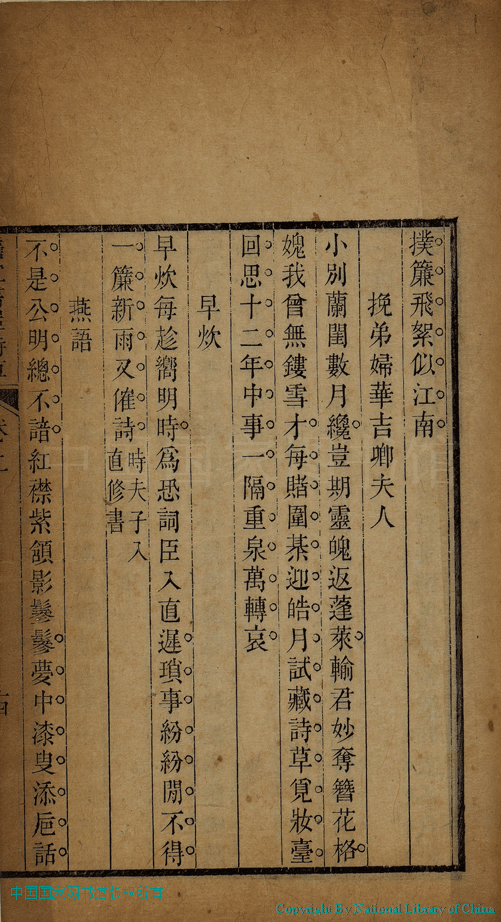 撲簾飛絮似江南
挽弟婦華吉卿夫人
小別蘭閨數月纔豈期靈魄返蓬萊輸君妙奪簪花格
媿我曾無鏤雪才每賭圍棊迎皓月試藏詩草覓妝臺
回思十二年中事一隔重泉萬轉哀
早炊
早炊每趁嚮明時爲恐詞臣入直遲瑣事紛紛閒不得
一簾新雨又催詩時夫子入直修書
燕語
不是公明總不諳紅襟紫頷影鬖鬖夢中漆叟添巵話
Copyright By National Library of China